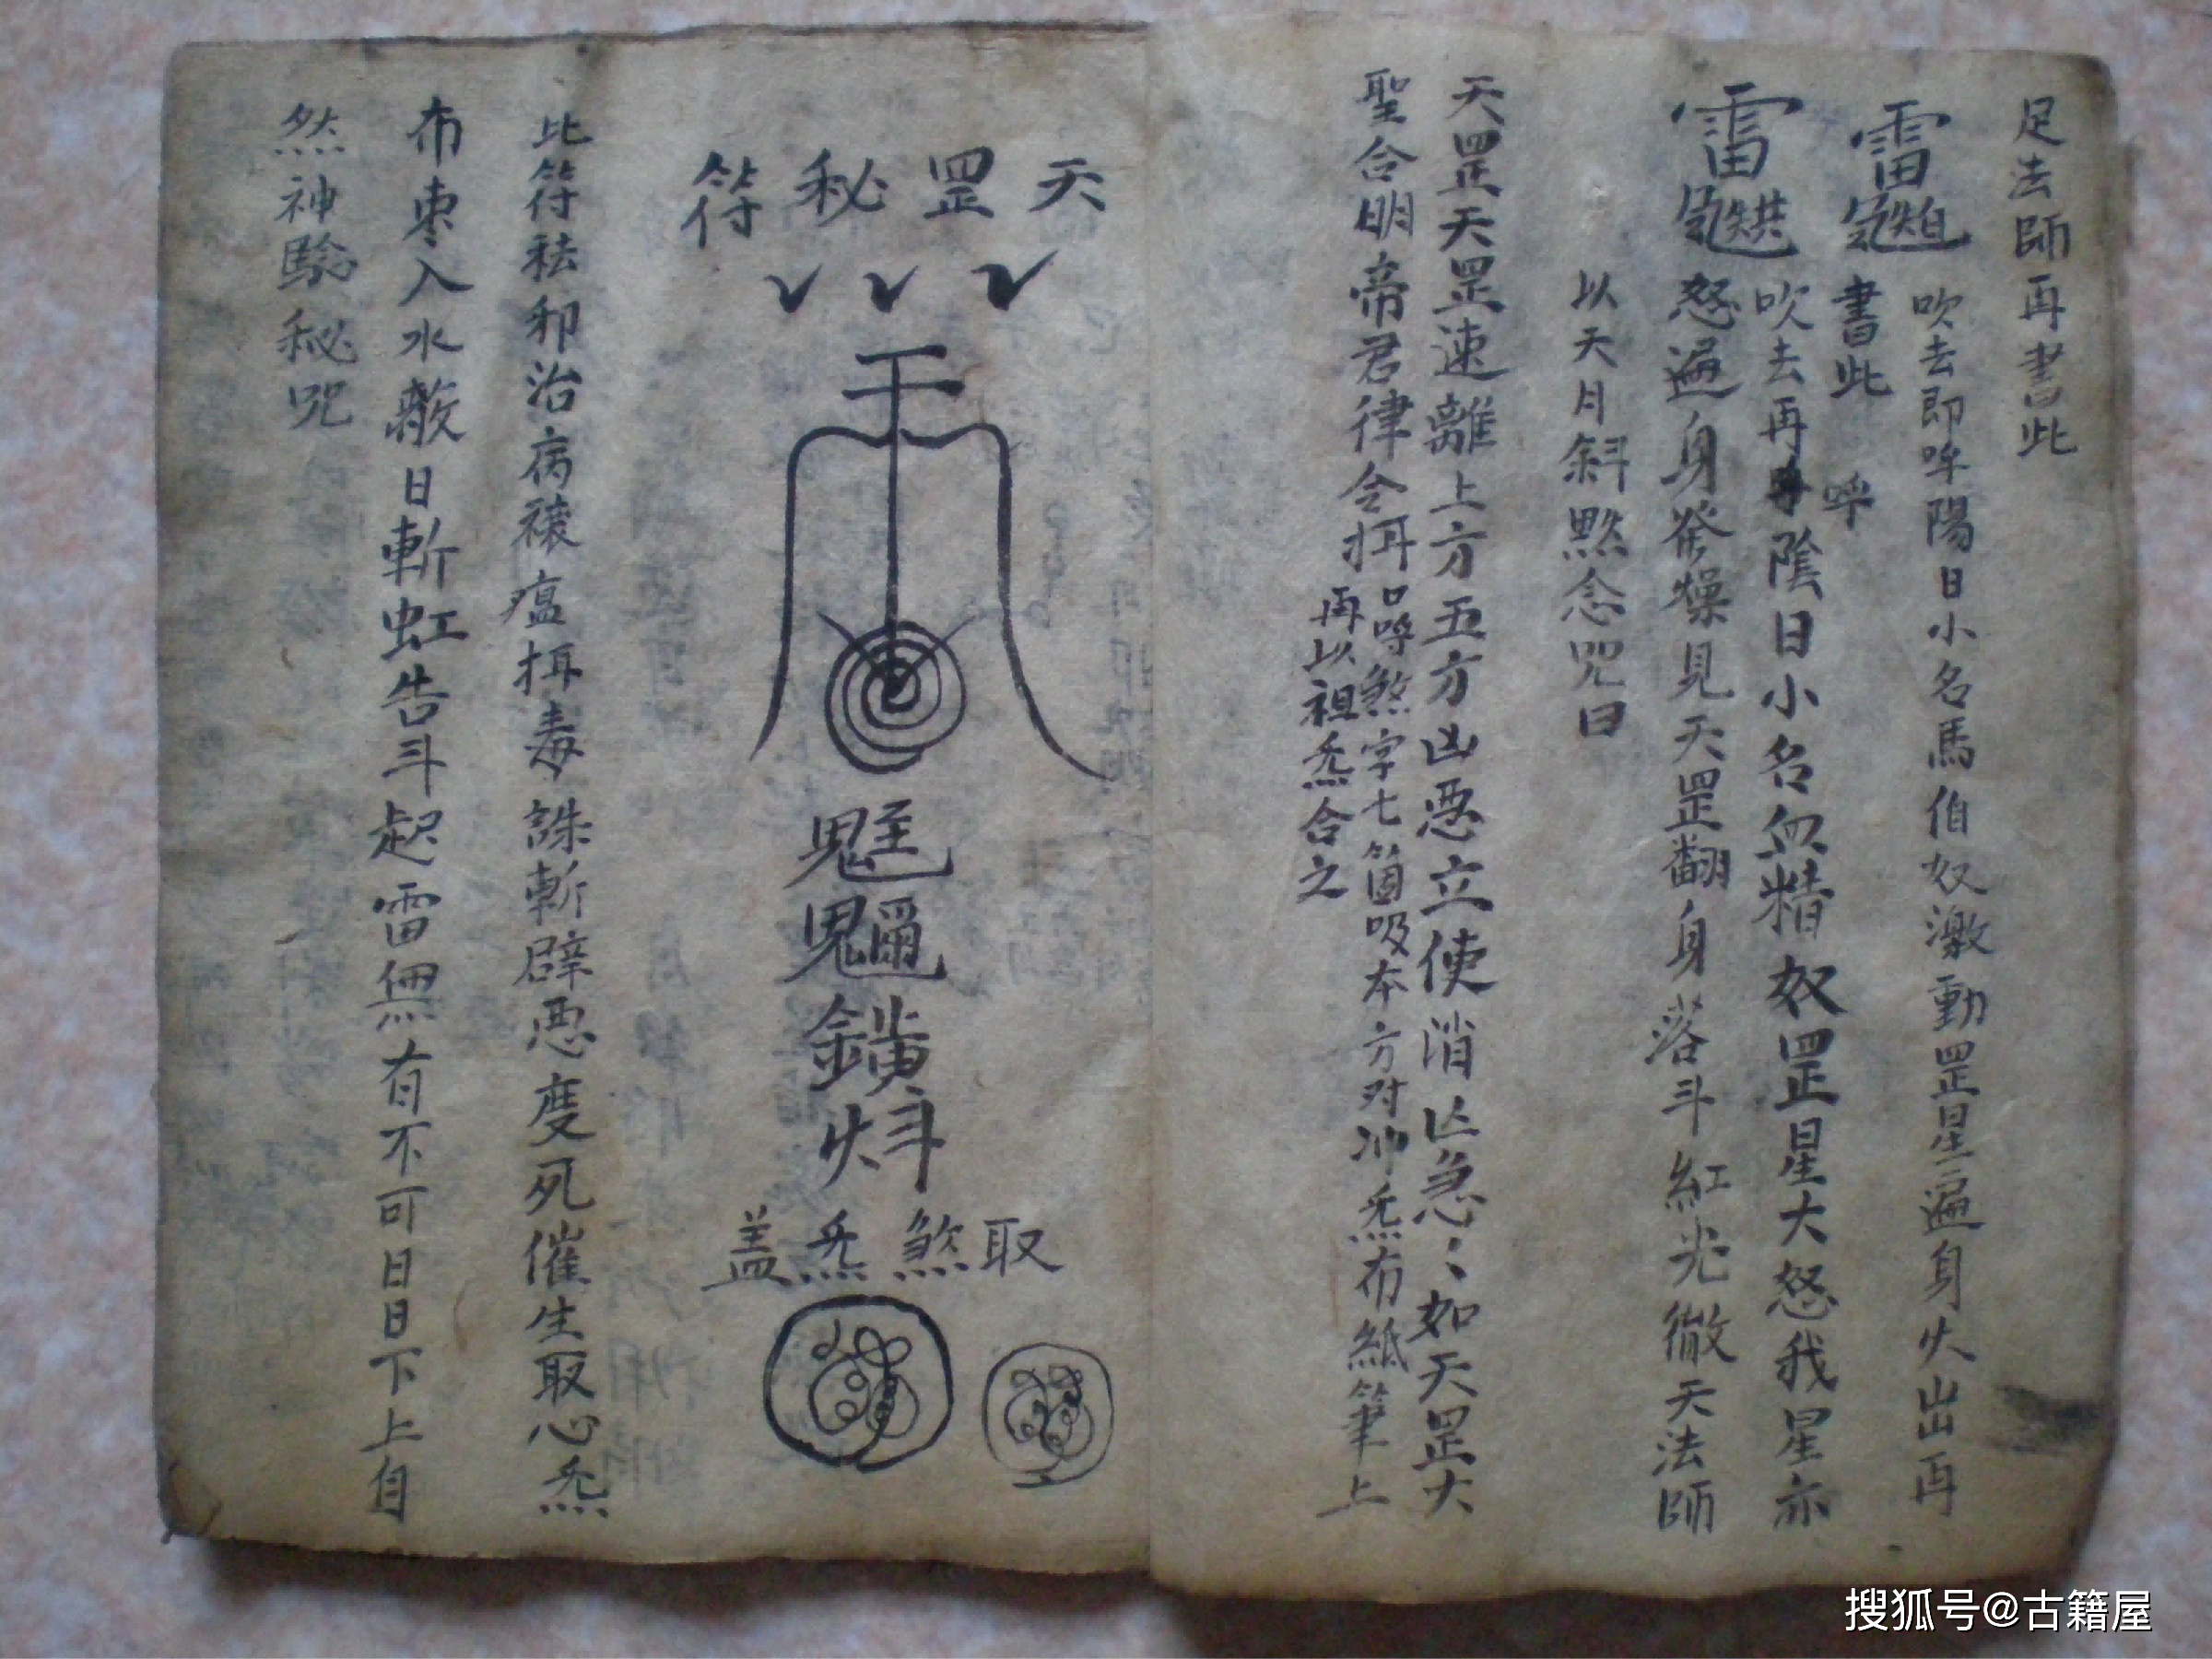 足法師再書此
雷
吹去即呼陽日小名馬伯奴激動罡星遍身火出再
書此 呼
雷
吹去再陰日小名血精奴罡星大怒我星亦
怒遍身發燥見天罡翻身落斗紅光徹天法師
以天月斜黙念咒曰
天罡天罡速離上方五方凶惡立使消亾急〻如天罡大
聖合明帝君律令揖
口呼煞字七箇吸本方对冲炁布紙筆上
再以祖炁合之
天罡秘符
魁
鑟
炓
取煞炁盖
此符祛邪治病禳瘟揖毒誅斬辟惡度死催生取心炁
布枣入水救日斬虹告斗起雷無有不可日日下上自
然神驗秘咒
搜狐号@古籍屋